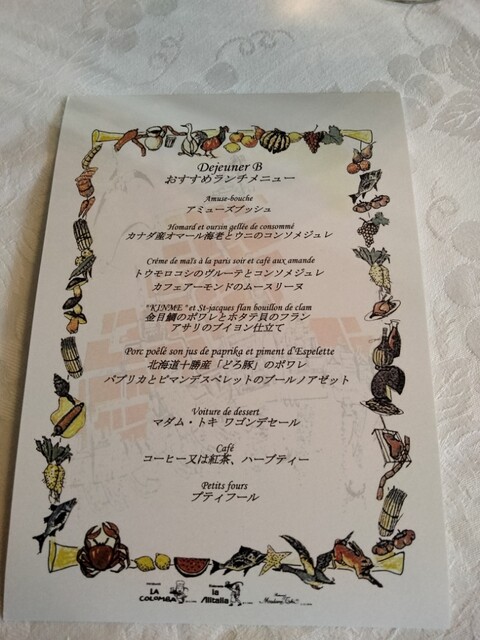 Dejeuner B
おすすめランチメニュー
Amuse-bouche
アミューズブッシュ
Homard et oursin gellée de consommé
カナダ産オマール海老とウニのコンソメジュレ
Crème de maïs à la paris soir et café aux amande
トウモロコシのヴルーテとコンソメジュレ
カフェアーモンドのムースリーヌ
"KINME" et St-jacques flan bouillon de clam
金目鯛のポワレとホタテ貝のフラン
アサリのブイヨン仕立て
Porc poêlé son jus de paprika et piment d'Espelette
北海道十勝産「どろ豚」のポワレ
パプリカとピマンデスペレットのブールノアゼット
Voiture de dessert
マダム・トキ ワゴンデセール
Café
コーヒー又は紅茶、ハーブティー
Petits fours
プティフール
LA COLOMBA
la Alitalia